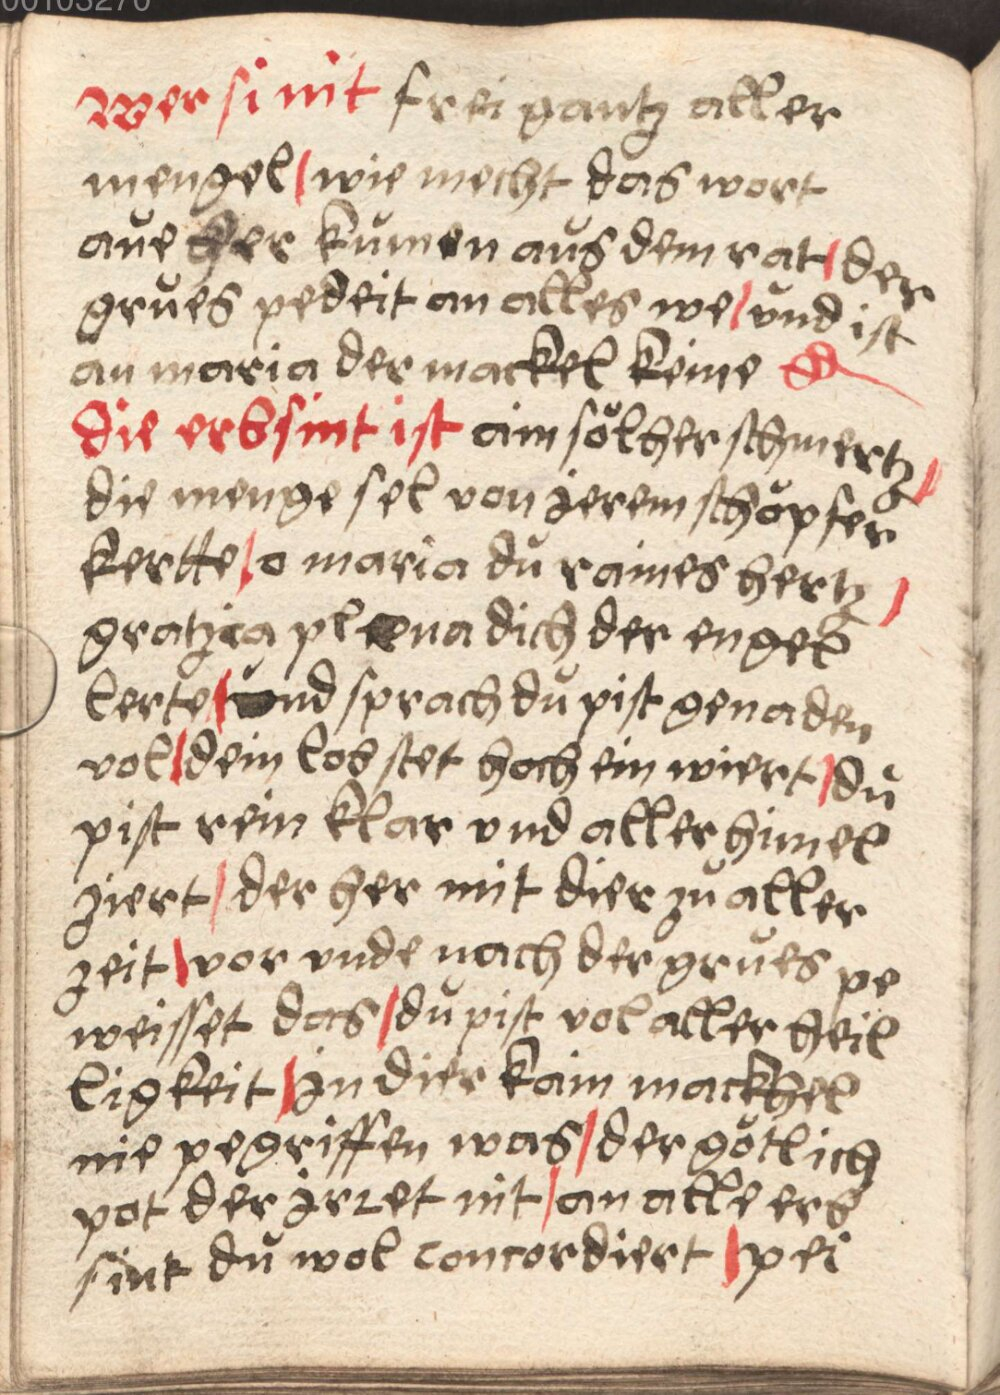 00103270
Wer si nit frei gantz aller
mengel / wie mecht das wort
aue her kumen aus dem rat / der
grues pedeit an alles we / vnd ist
an maria der mackel keine
die erbsint ist ain sölher schmertz /
die menge sel von jerem schöpfer
kertte / o maria du raines hertz /
gratzia plena dich der engel
lerte / vnd sprach du pist genaden
vol / dein lob stet hoch ein wiert / du
pist rein klar vnd aller himel
ziert / der her mit dier zu aller
zeit / vor vnde nach der grues pe
weisset das / du pist vol aller heil
ligkeit / in dier kain mackhel
nie pegriffen was / der götlich
pot der jrret nit / an alle erb
sint du wol concordiert / pei